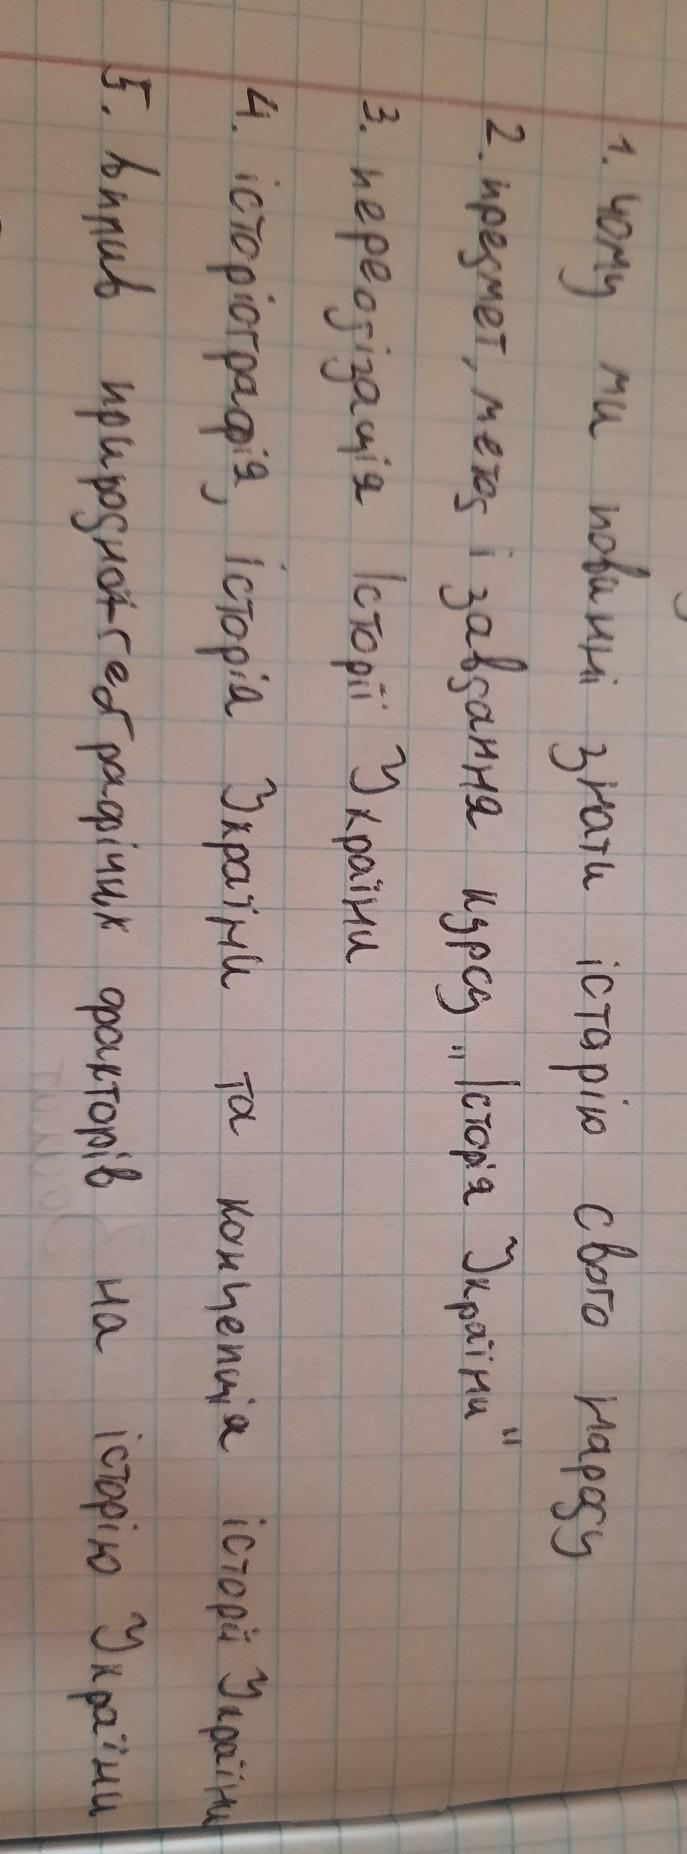 1. чому ми повинні знати історію свого народу
2. предмет, метод і завдання курсу „Історія України"
3. переодізація Історії України
4. історіографія, історія України та концепція історії України
5. вплив природно-географічних факторів на історію України